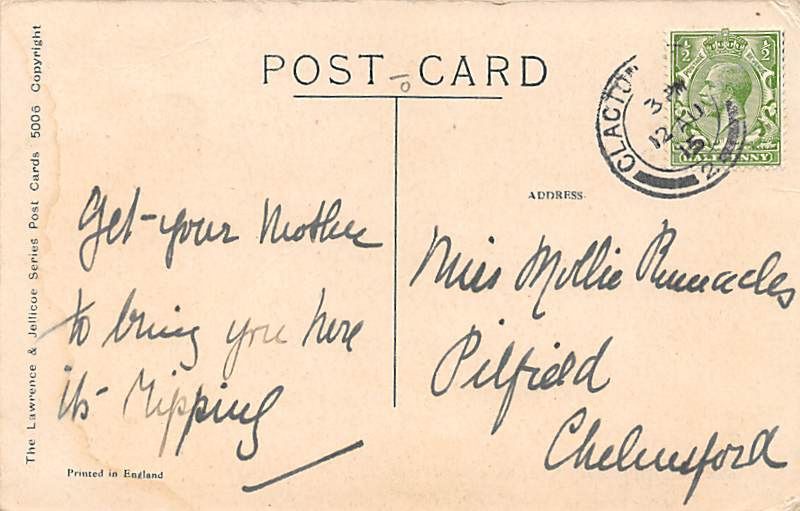 POST CARD
The Lawrence & Jellicoe Series Post Cards 5006 Copyright
CLACTON
3 PM
12 AU
15
2
½ ½
HALFPENNY
ADDRESS
Get your Mother
to bring you here
its ripping
Printed in England
Miss Mollie
Pilfield
Chelmsford